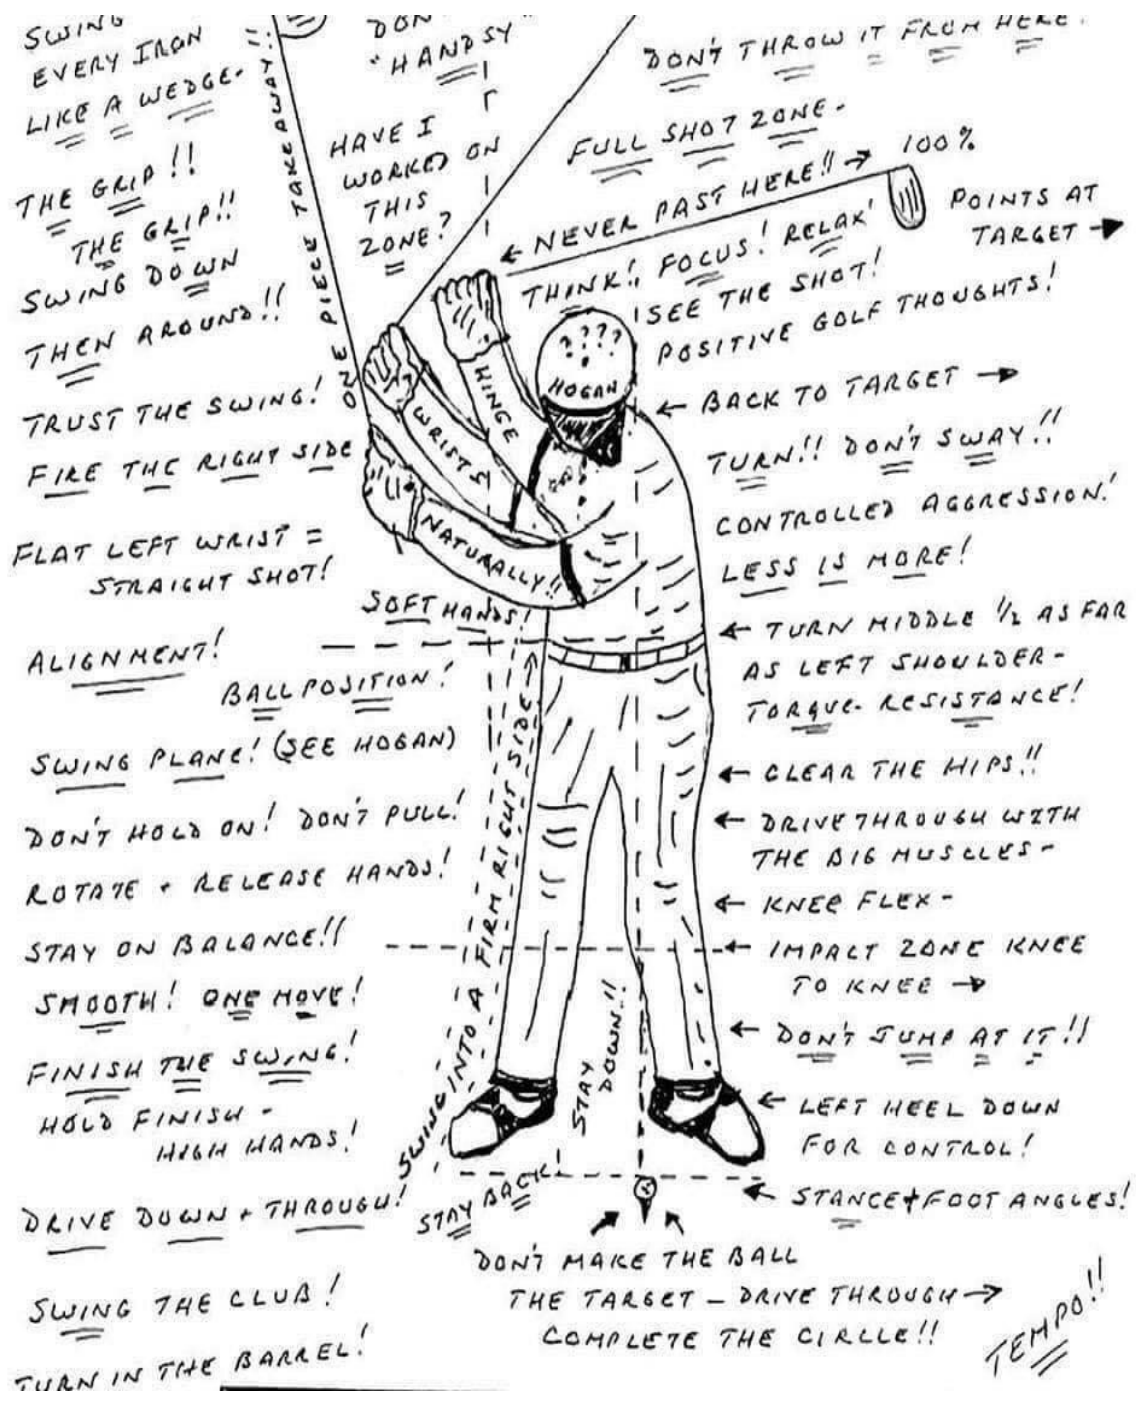 SWING
EVERY IRON
LIKE A WEDGE-
THE GRIP!!
THE GRIP!!
SWING DOWN
THEN AROUND!!
TRUST THE SWING!
FIRE THE RIGHT SIDE
FLAT LEFT WRIST =
STRAIGHT SHOT!
ALIGNMENT!
BALL POSITION!
SWING PLANE! (SEE HOGAN)
DON'T HOLD ON! DON'T PULL!
ROTATE + RELEASE HANDS!
STAY ON BALANCE!!
SMOOTH! ONE MOVE!
FINISH THE SWING!
HOLD FINISH -
HIGH HANDS!
DRIVE DOWN + THROUGH!
SWING THE CLUB!
TURN IN THE BARREL!
ONE PIECE TAKEAWAY!!
"HANDSY"
HAVE I
WORKED ON
THIS
ZONE?
HINGE
WRISTS
NATURALLY!!
SOFT HANDS!
SWING INTO A FIRM RIGHT SIDE
STAY
DOWN!!
STAY BACK!
DON'T THROW IT FROM HERE!
FULL SHOT ZONE-
← NEVER PAST HERE!! → 100%
POINTS AT
TARGET →
THINK!! FOCUS! RELAX!
SEE THE SHOT!
POSITIVE GOLF THOUGHTS!
????
HOGAN
← BACK TO TARGET →
TURN!! DON'T SWAY!!
CONTROLLED AGGRESSION!
LESS IS MORE!
← TURN MIDDLE 1/2 AS FAR
AS LEFT SHOULDER-
TORQUE- RESISTANCE!
← CLEAR THE HIPS!!
← DRIVE THROUGH WITH
THE BIG MUSCLES-
← KNEE FLEX-
← IMPACT ZONE KNEE
TO KNEE →
← DON'T JUMP AT IT!!
← LEFT HEEL DOWN
FOR CONTROL!
← STANCE + FOOT ANGLES!
DON'T MAKE THE BALL
THE TARGET - DRIVE THROUGH →
COMPLETE THE CIRCLE!!
TEMPO!!